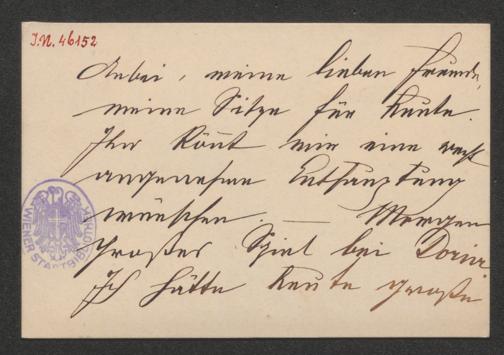 J.N. 46152
Anbei, meine lieben Freunde,
meine Sitze für heute.
Ihr könnt mir eine recht
angenehme Enthauptung
wünschen. — Morgen
großes Spiel bei
Ich hätte heute große
WIENER STADTBIBLIOTHEK